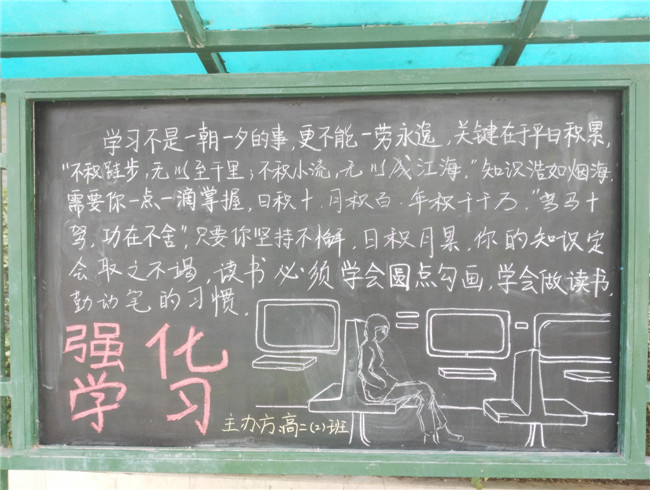 学习不是一朝一夕的事，更不能一劳永逸，关键在于平日积累，
“不积跬步，无以至千里；不积小流，无以成江海。”知识浩如烟海，
需要你一点一滴掌握，日积十．月积百．年积千千万。“驽马十
驾，功在不舍”，只要你坚持不懈，日积月累，你的知识定
会取之不竭，读书必须学会圆点勾画，学会做读书，
勤动笔的习惯．
强化
学习
主办方：高二（2）班